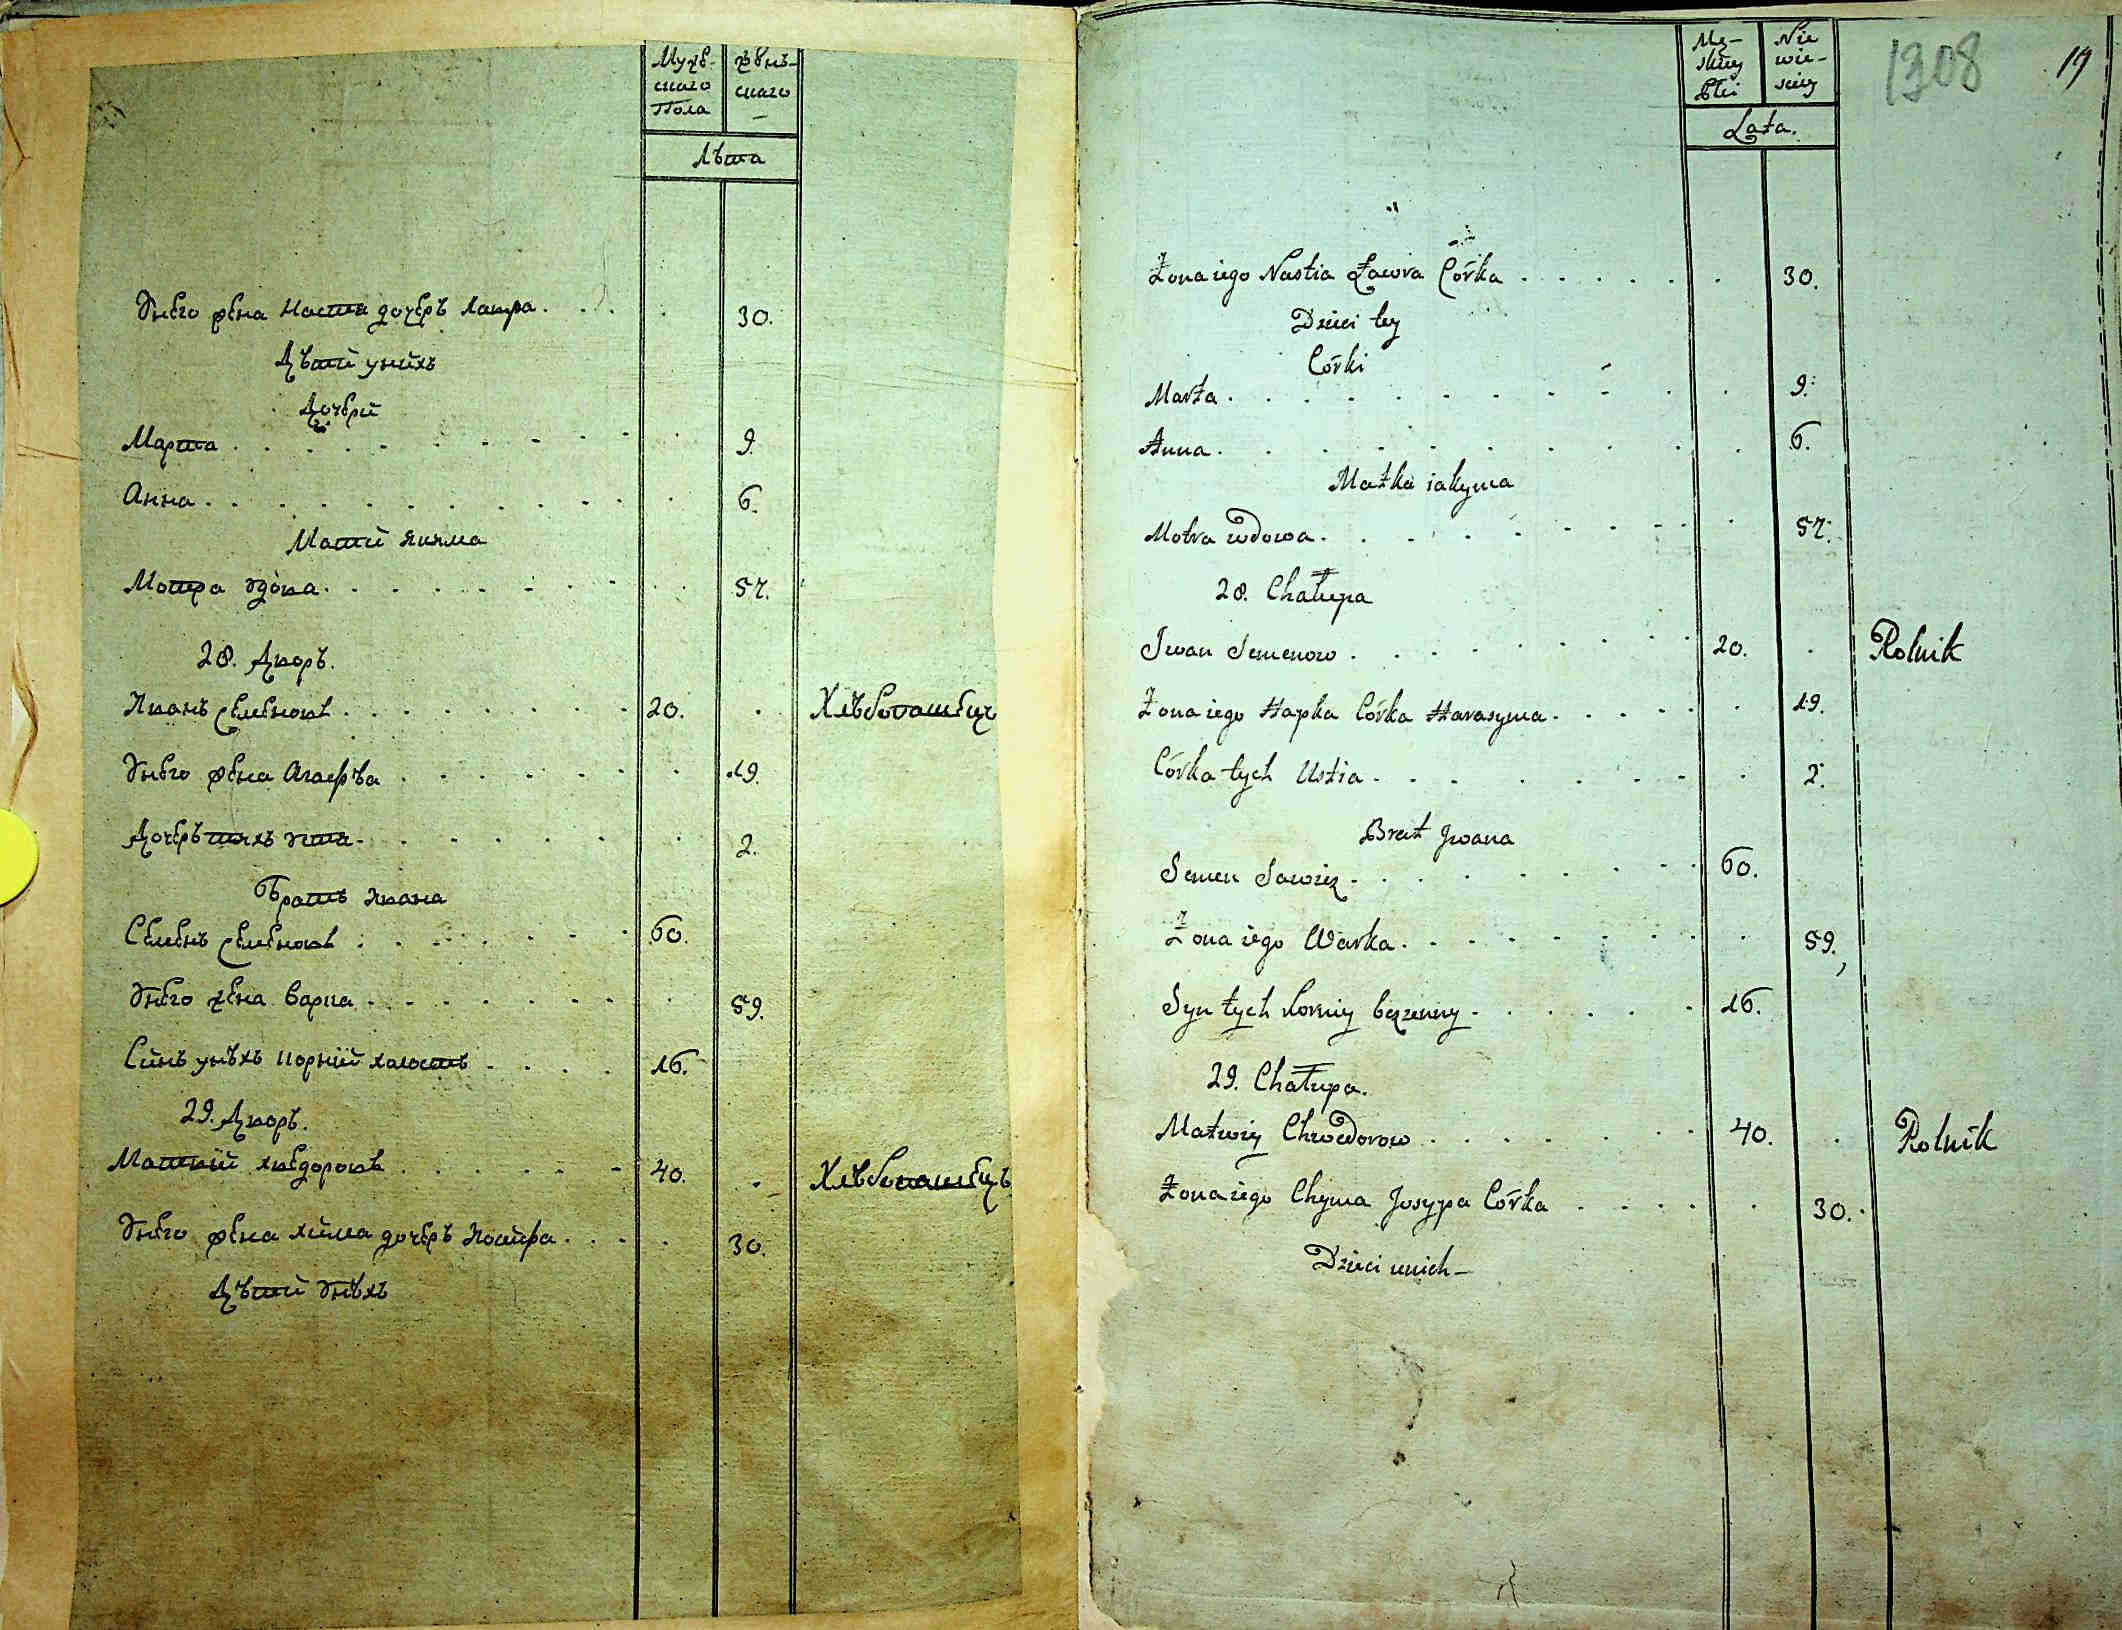 Мужес-
скаго
Пола
Женъ-
скаго
Лѣта
Унего жена Настя дочеръ Лавра . . . 30.
Дѣтй унихъ
Дочерй
Марта . . . 9.
Анна . . . 6.
Матй Якима
Мотра вдова . . . 57.
28. Дворъ.
Иванъ Семеновъ . . . 20. Хлѣбопашецъ
Унего жена Агафѣа . . . 19.
Дочеръ тихъ Устя . . . 2.
Братъ Ивана
Семенъ Семеновъ . . . 60.
Унего жена Варка . . . 59.
Синъ унѣхъ Корнѣй холостъ . . . 16.
29. Дворъ.
Матвій Хведоровъ . . . 40. Хлѣбопашецъ
Унего жена Хима дочеръ Иосифа . . . 30.
Дѣтй Унѣхъ
Mę-
skiey
Płci
Nie
wie-
sciey
1308
Lata.
Żona iego Nastia Ławra Córka . . . 30.
Dzieci tey
Córki
Marta . . . 9.
Anna . . . 6.
Matka iakyma
Motra wdowa . . . 57.
28. Chałupa
Jwan Semenow . . . 20. Rolnik
Żona iego Hapka Córka Harasyma . . . 19.
Córka tych Ustia . . . 2.
Brat Jwana
Semen Sawicz . . . 60.
Żona iego Warka . . . 59.
Syn tych Korniy bezzenny . . . 16.
29. Chałupa.
Matwiy Chwedorow . . . 40. Rolnik
Żona iego Chyma Josypa Córka . . . 30.
Dzieci unich